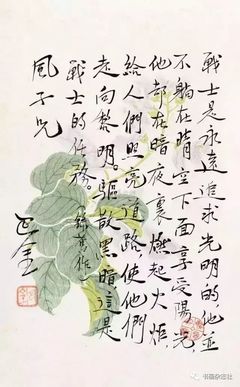 戰士是永遠追求光明的他並
不躺在晴空下面享受陽光，
他却在暗夜裏燃起火炬，
給人們照亮道路，使他們
走向黎明。驅散黑暗這是
戰士的任務。
錄舊作
風子兄
巴金
书画杂志社